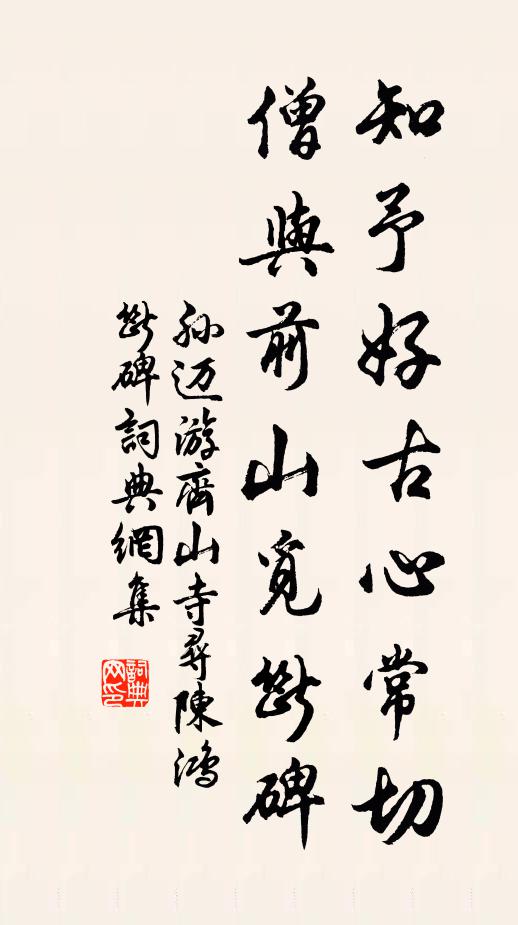 知予好古心常切
僧與前山覓斷碑
孙迈游齊山寺尋陳鴻
斷碑詞典網集
詞典网印